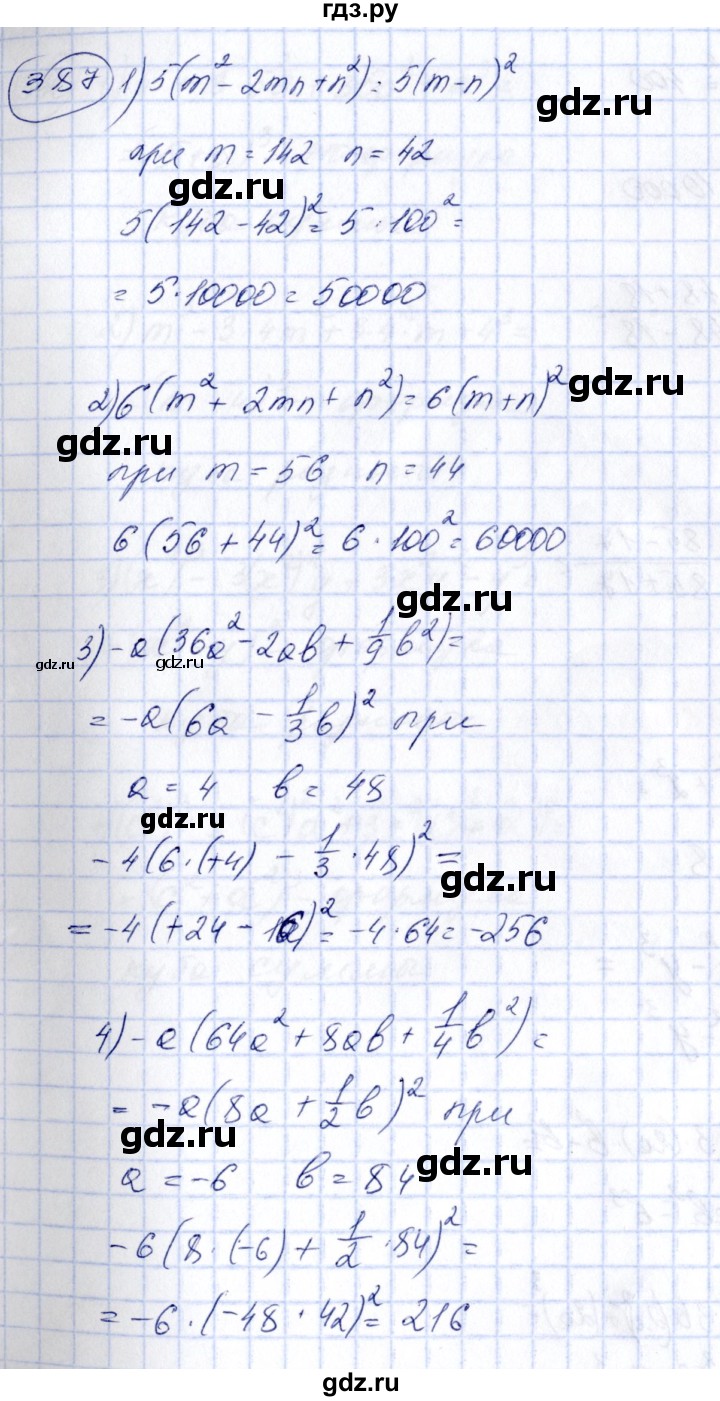 гдз.ру
387 1) 5(m² - 2mn + n²) = 5(m-n)²
при m = 142 n = 42
gdz.ru gdz.ru
5(142 - 42)² = 5 · 100² =
= 5·10000 = 50000
2) 6(m² + 2mn + n²) = 6(m+n)²
gdz.ru
gdz.ru
при m = 56 n = 44
6(56 + 44)² = 6 · 100² = 60000
gdz.ru
3) -a(36a² - 2ab + 1/9 b²) =
gdz.ru gdz.ru
= -a(6a - 1/3 b)² при
a = 4 b = 48
gdz.ru
-4(6·(+4) - 1/3 · 48)² =
gdz.ru
= -4(+24 - 16)² = -4·64 = -256
4) -a(64a² + 8ab + 1/4 b²) =
= -a(8a + 1/2 b)² при
gdz.ru
a = -6 b = 84
gdz.ru
-6(8·(-6) + 1/2 · 84)² =
= -6·(-48 · 42)² = 216
gdz.ru